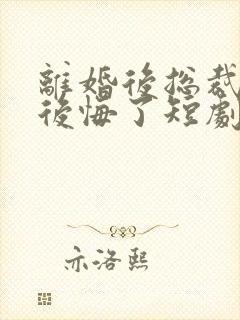 離婚後総裁
後悔了短劇
亦洛熙